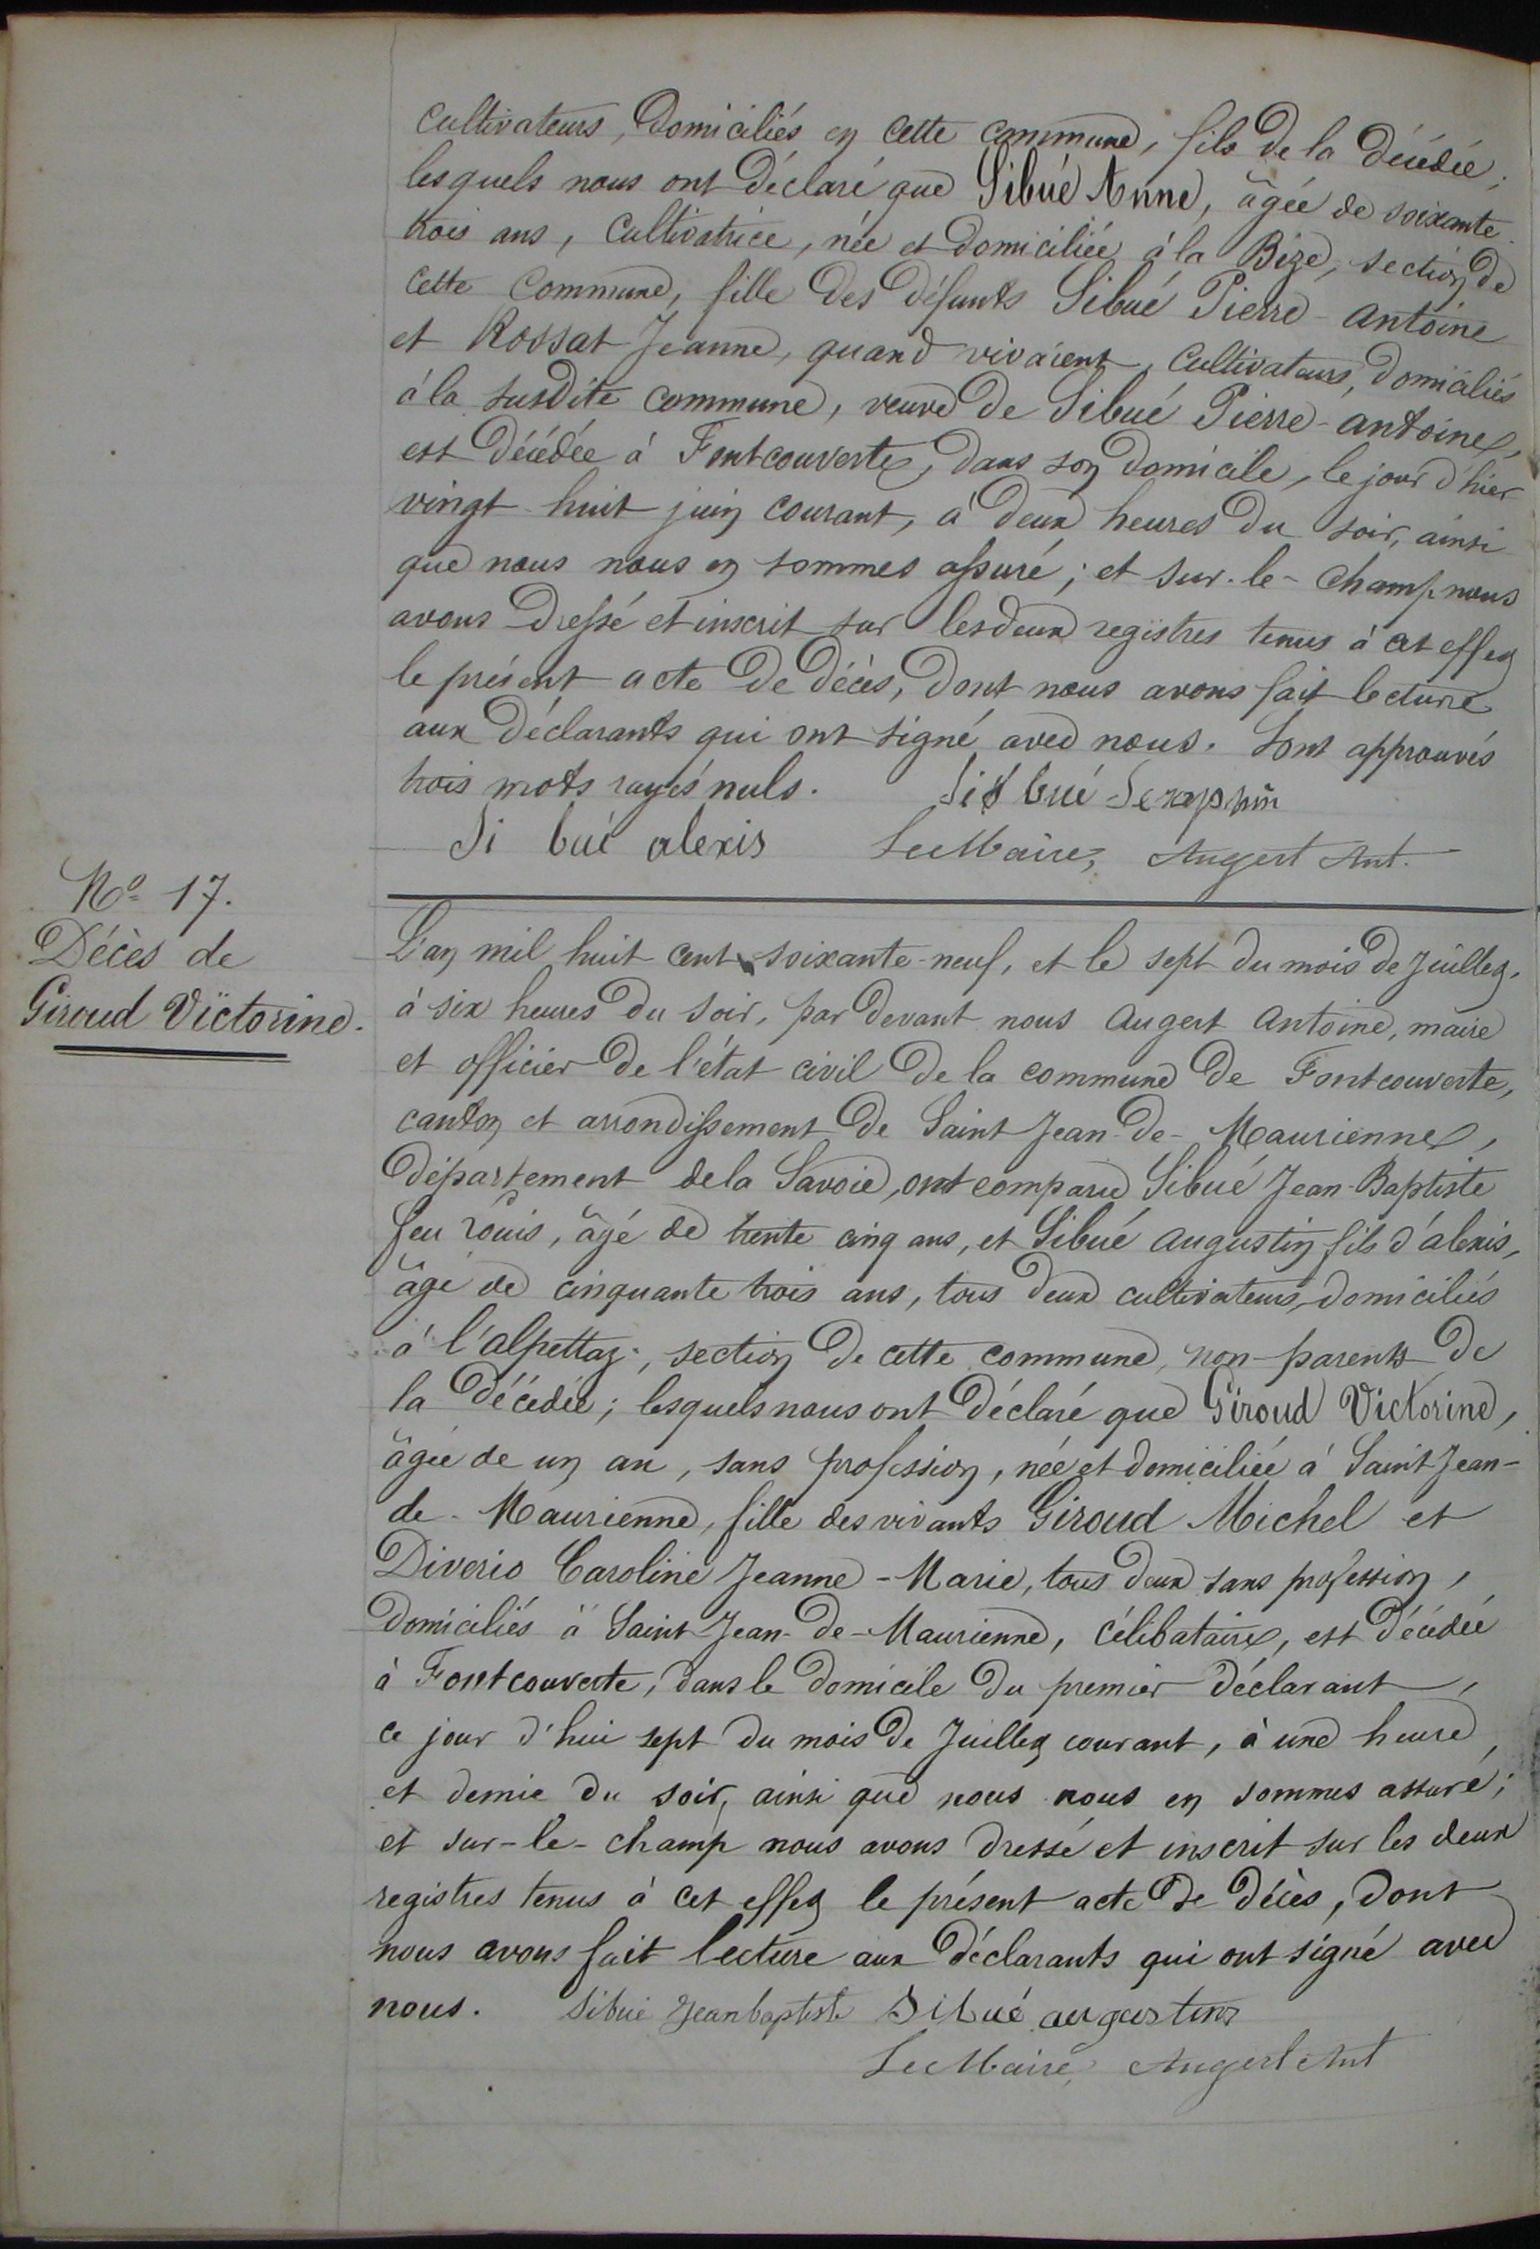 cultivateurs, domiciliés en cette commune, fils de la décédée;
lesquels nous ont déclaré que Sibué Anne, âgée de soixante
trois ans, cultivatrice, née et domiciliée à la Bize, section de
cette commune, fille des défunts Sibué Pierre-antoine
et Rossat Jeanne, quand vivaient, cultivateurs, domiciliés
à la susdite commune, veuve de Sibué Pierre-antoine,
est décédée à Fontcouverte, dans son domicile, le jour d'hier
vingt-huit juin courant, à deux heures du soir, ainsi
que nous nous en sommes assuré; et sur-le-champ nous
avons dressé et inscrit sur les deux registres tenus à cet effet
le présent acte de décès, dont nous avons fait lecture
aux déclarants qui ont signé avec nous. Sont approuvés
trois mots rayés nuls. Sibué Seraphin
Si bué alexis Le Maire, Augert Ant.
No 17.
Décès de
Giroud Victorine.
L'an mil huit cent soixante-neuf, et le sept du mois de Juillet,
à six heures du soir, par devant nous Augert Antoine, maire
et officier de l'état civil de la commune de Fontcouverte,
canton et arrondissement de Saint Jean-de-Maurienne,
département de la Savoie, ont comparu Sibué Jean-Baptiste
feu Louis, âgé de trente cinq ans, et Sibué Augustin fils d'alexis,
âgé de cinquante trois ans, tous deux cultivateurs, domiciliés
à l'alpettaz, section de cette commune, non-parents de
la décédée; lesquels nous ont déclaré que Giroud Victorine,
âgée de un an, sans profession, née et domiciliée à Saint Jean-
de-Maurienne, fille des vivants Giroud Michel et
Diverio Caroline Jeanne-Marie, tous deux sans profession,
domiciliés à Saint-Jean-de-Maurienne, célibataire, est décédée
à Fontcouverte, dans le domicile du premier déclarant,
ce jour d'hui sept du mois de Juillet courant, à une heure
et demie du soir, ainsi que nous nous en sommes assuré;
et sur-le-champ nous avons dressé et inscrit sur les deux
registres tenus à cet effet le présent acte de décès, dont
nous avons fait lecture aux déclarants qui ont signé avec
nous. Sibué Jean baptiste Sibué augustin
Le Maire, Augert Ant